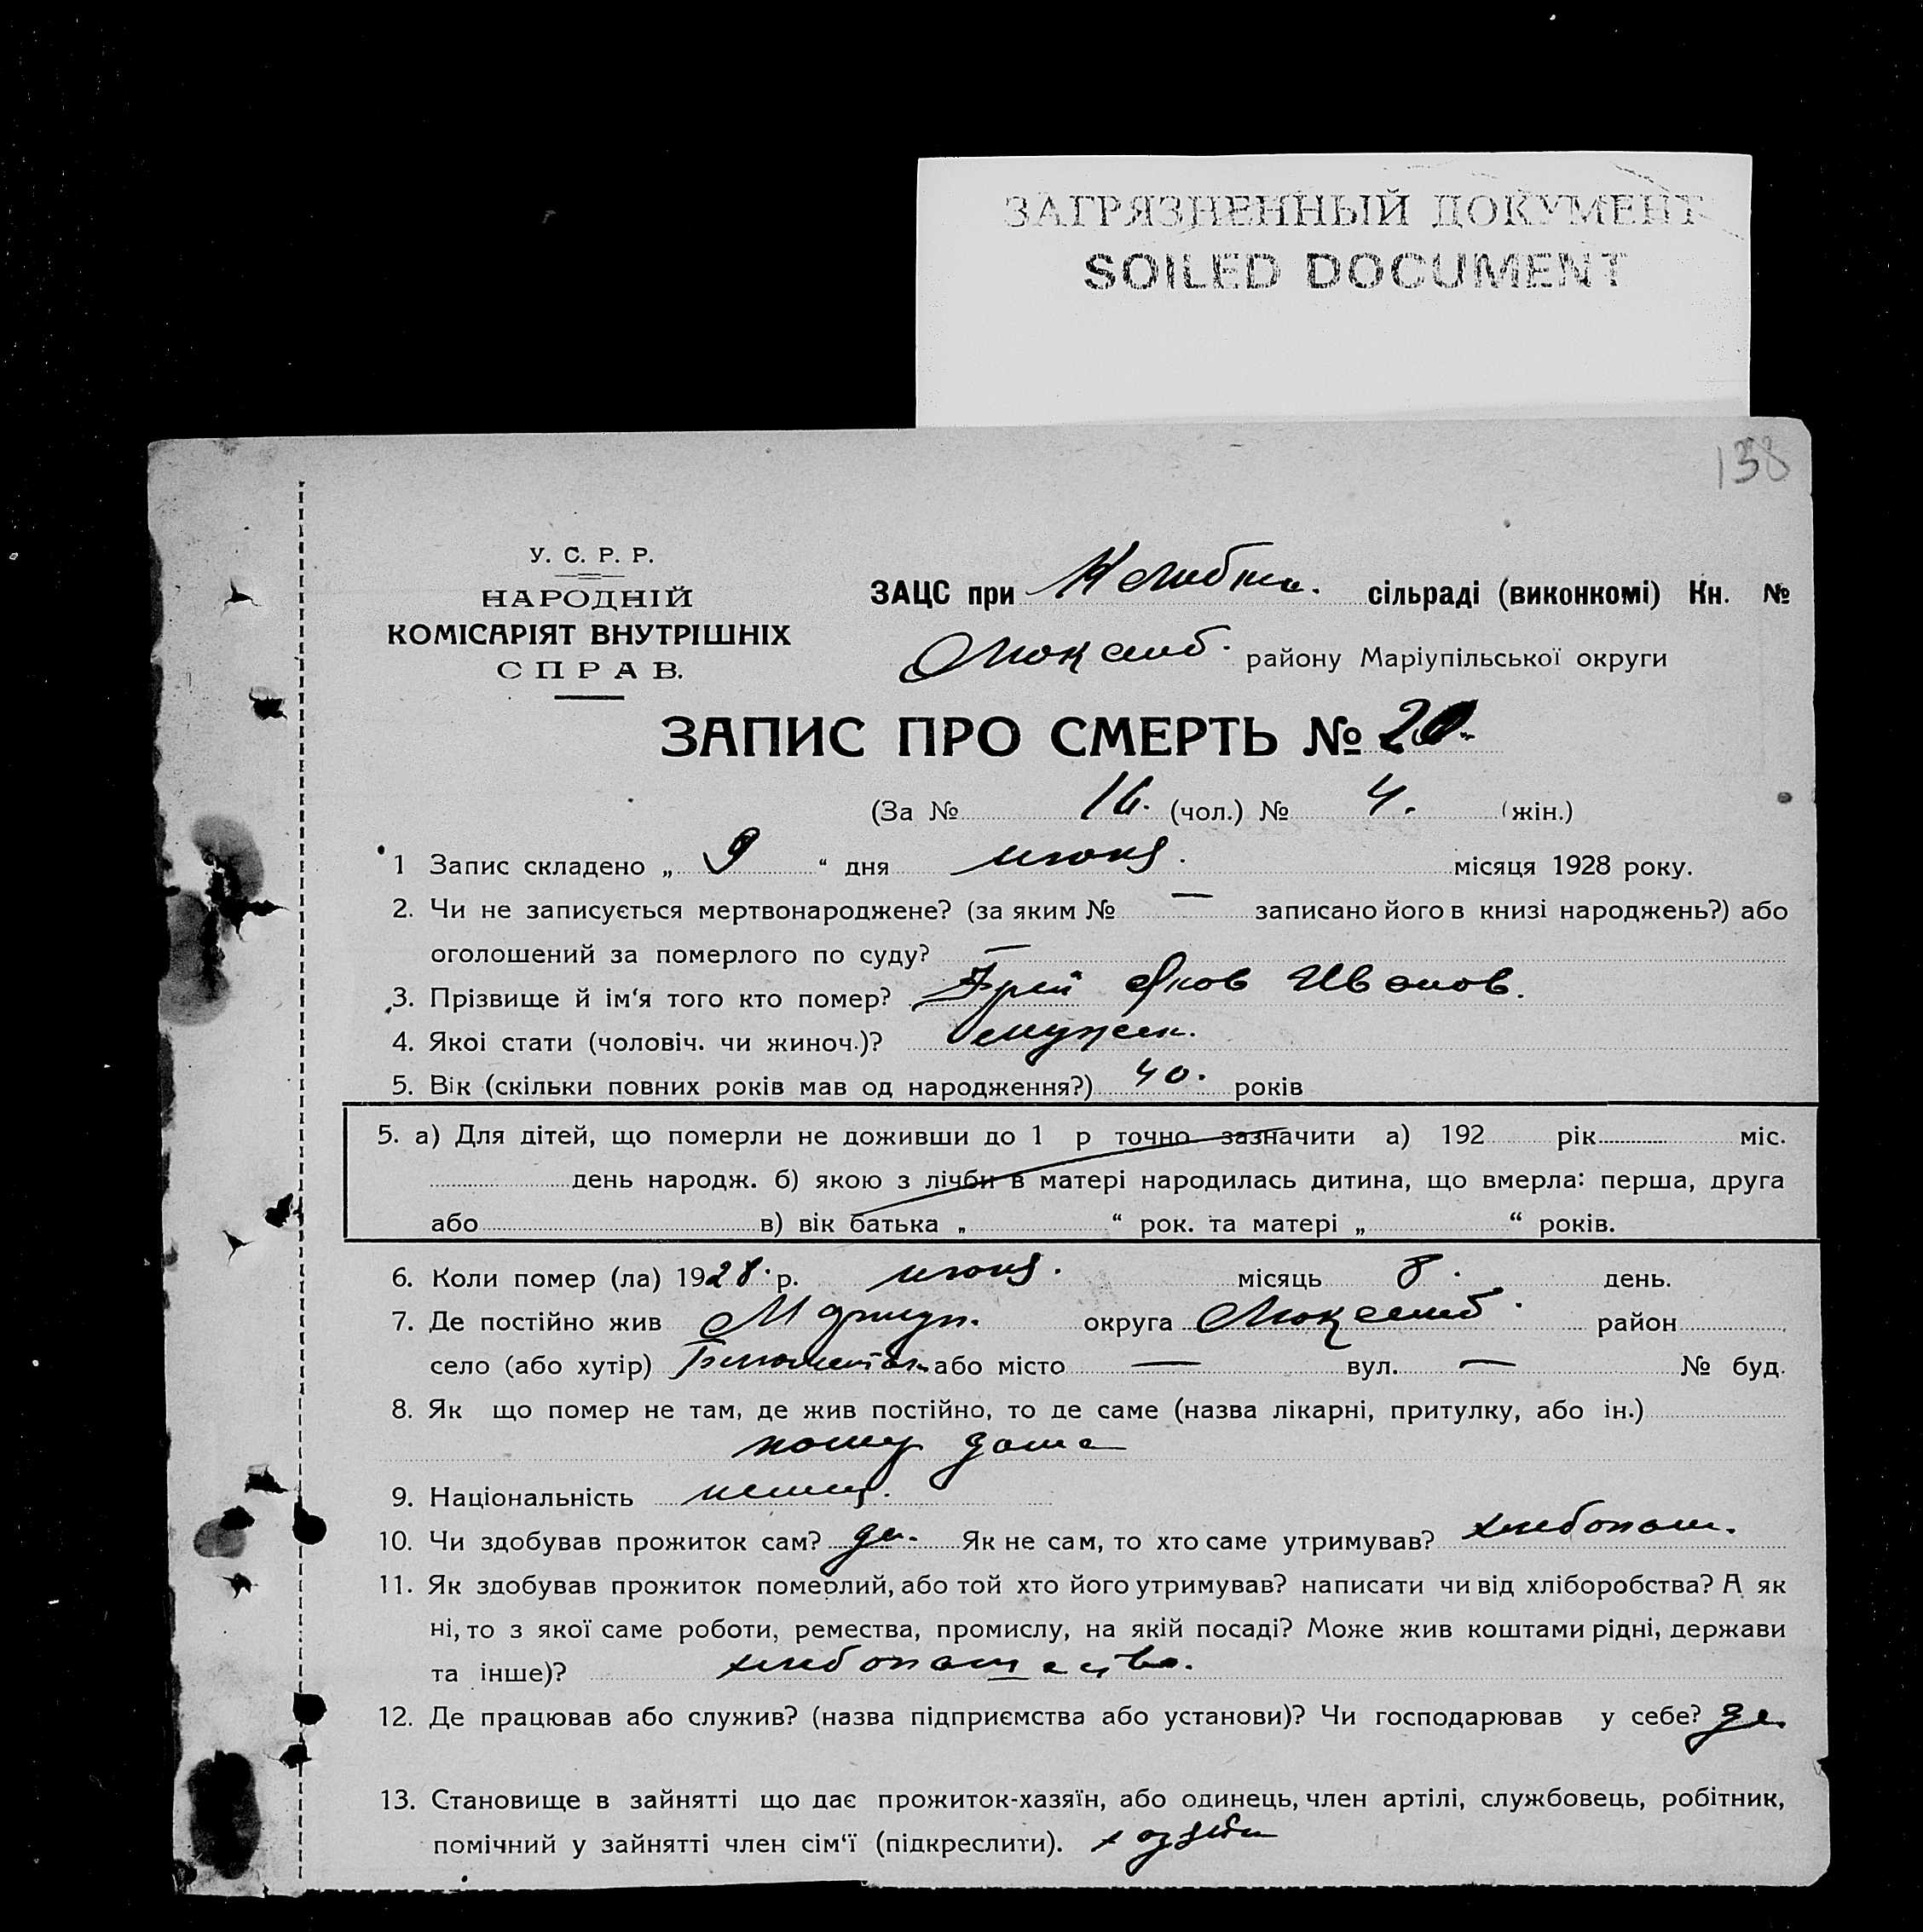 ЗАГРЯЗНЕННЫЙ ДОКУМЕНТ
SOILED DOCUMENT
138
У. С. Р. Р.
НАРОДНІЙ
КОМІСАРІЯТ ВНУТРІШНІХ
СПРАВ.
ЗАЦС при сільраді (виконкомі) Кн. №
Люксемб. району Маріупільської округи
ЗАПИС ПРО СМЕРТЬ № 20.
(За № 16. (чол.) № 4. (жін.)
1 Запис складено „ 9 “ дня июня. місяця 1928 року.
2. Чи не записується мертвонароджене? (за яким № — записано його в книзі народжень?) або
оголошений за померлого по суду? —
3. Прізвище й ім‘я того кто помер? Яков Иванов.
4. Якої стати (чоловіч. чи жиноч.)? мужск.
5. Вік (скільки повних років мав од народження?) 40. років
5. а) Для дітей, що померли не доживши до 1 р точно зазначити а) 192 рік міс.
день народж. б) якою з лічби в матері народилась дитина, що вмерла: перша, друга
або в) вік батька „ “ рок. та матері „ “ років.
6. Коли помер (ла) 1928. р. июня. місяць 8. день.
7. Де постійно жив Мариуп. округа Люксемб. район
село (або хутір) або місто — вул. — № буд.
8. Як що помер не там, де жив постійно, то де саме (назва лікарні, притулку, або ін.)
дома
9. Національність немец.
10. Чи здобував прожиток сам? да. Як не сам, то хто саме утримував? хлебопаш.
11. Як здобував прожиток померлий, або той хто його утримував? написати чи від хліборобства? А як
ні, то з якої саме роботи, ремества, промислу, на якій посаді? Може жив коштами рідні, держави
та інше)? хлебопашество.
12. Де працював або служив? (назва підприємства або установи)? Чи господарював у себе? да.
13. Становище в зайнятті що дає прожиток-хазяїн, або одинець, член артілі, службовець, робітник,
помічний у зайнятті член сім‘ї (підкреслити). хозяин